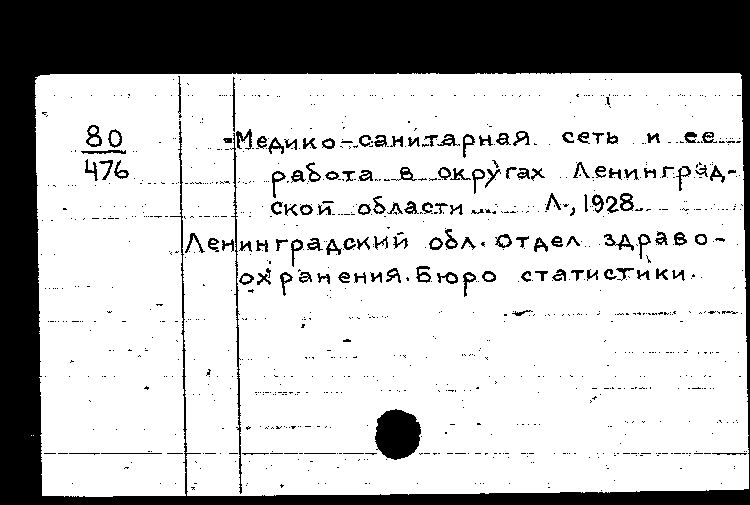 80
476
-Медико-санитарная сеть и ее
работа в округах Ленинград-
ской области... Л., 1928
Ленинградский обл. отдел здраво-
охранения. Бюро статистики.